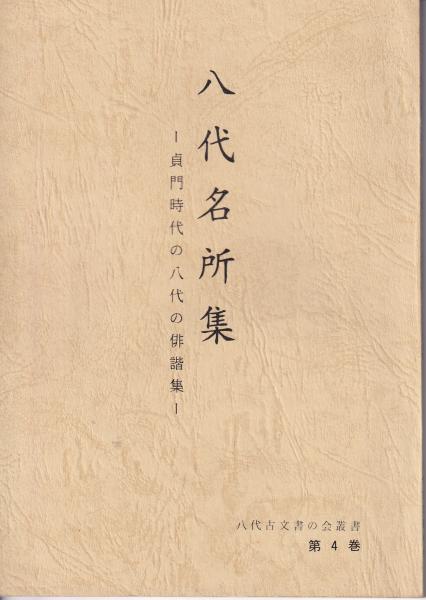 八代名所集
ー貞門時代の八代の俳諧集ー
八代古文書の会叢書
第4巻